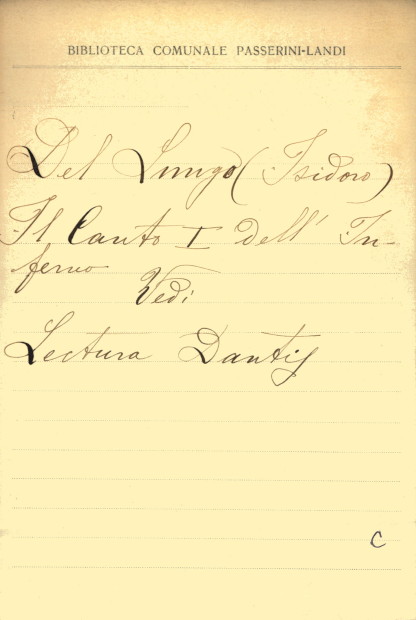 BIBLIOTECA COMUNALE PASSERINI-LANDI
Del Lungo (Isidoro)
Il Canto I dell' In-
ferno
Vedi
Lectura Dantis
C